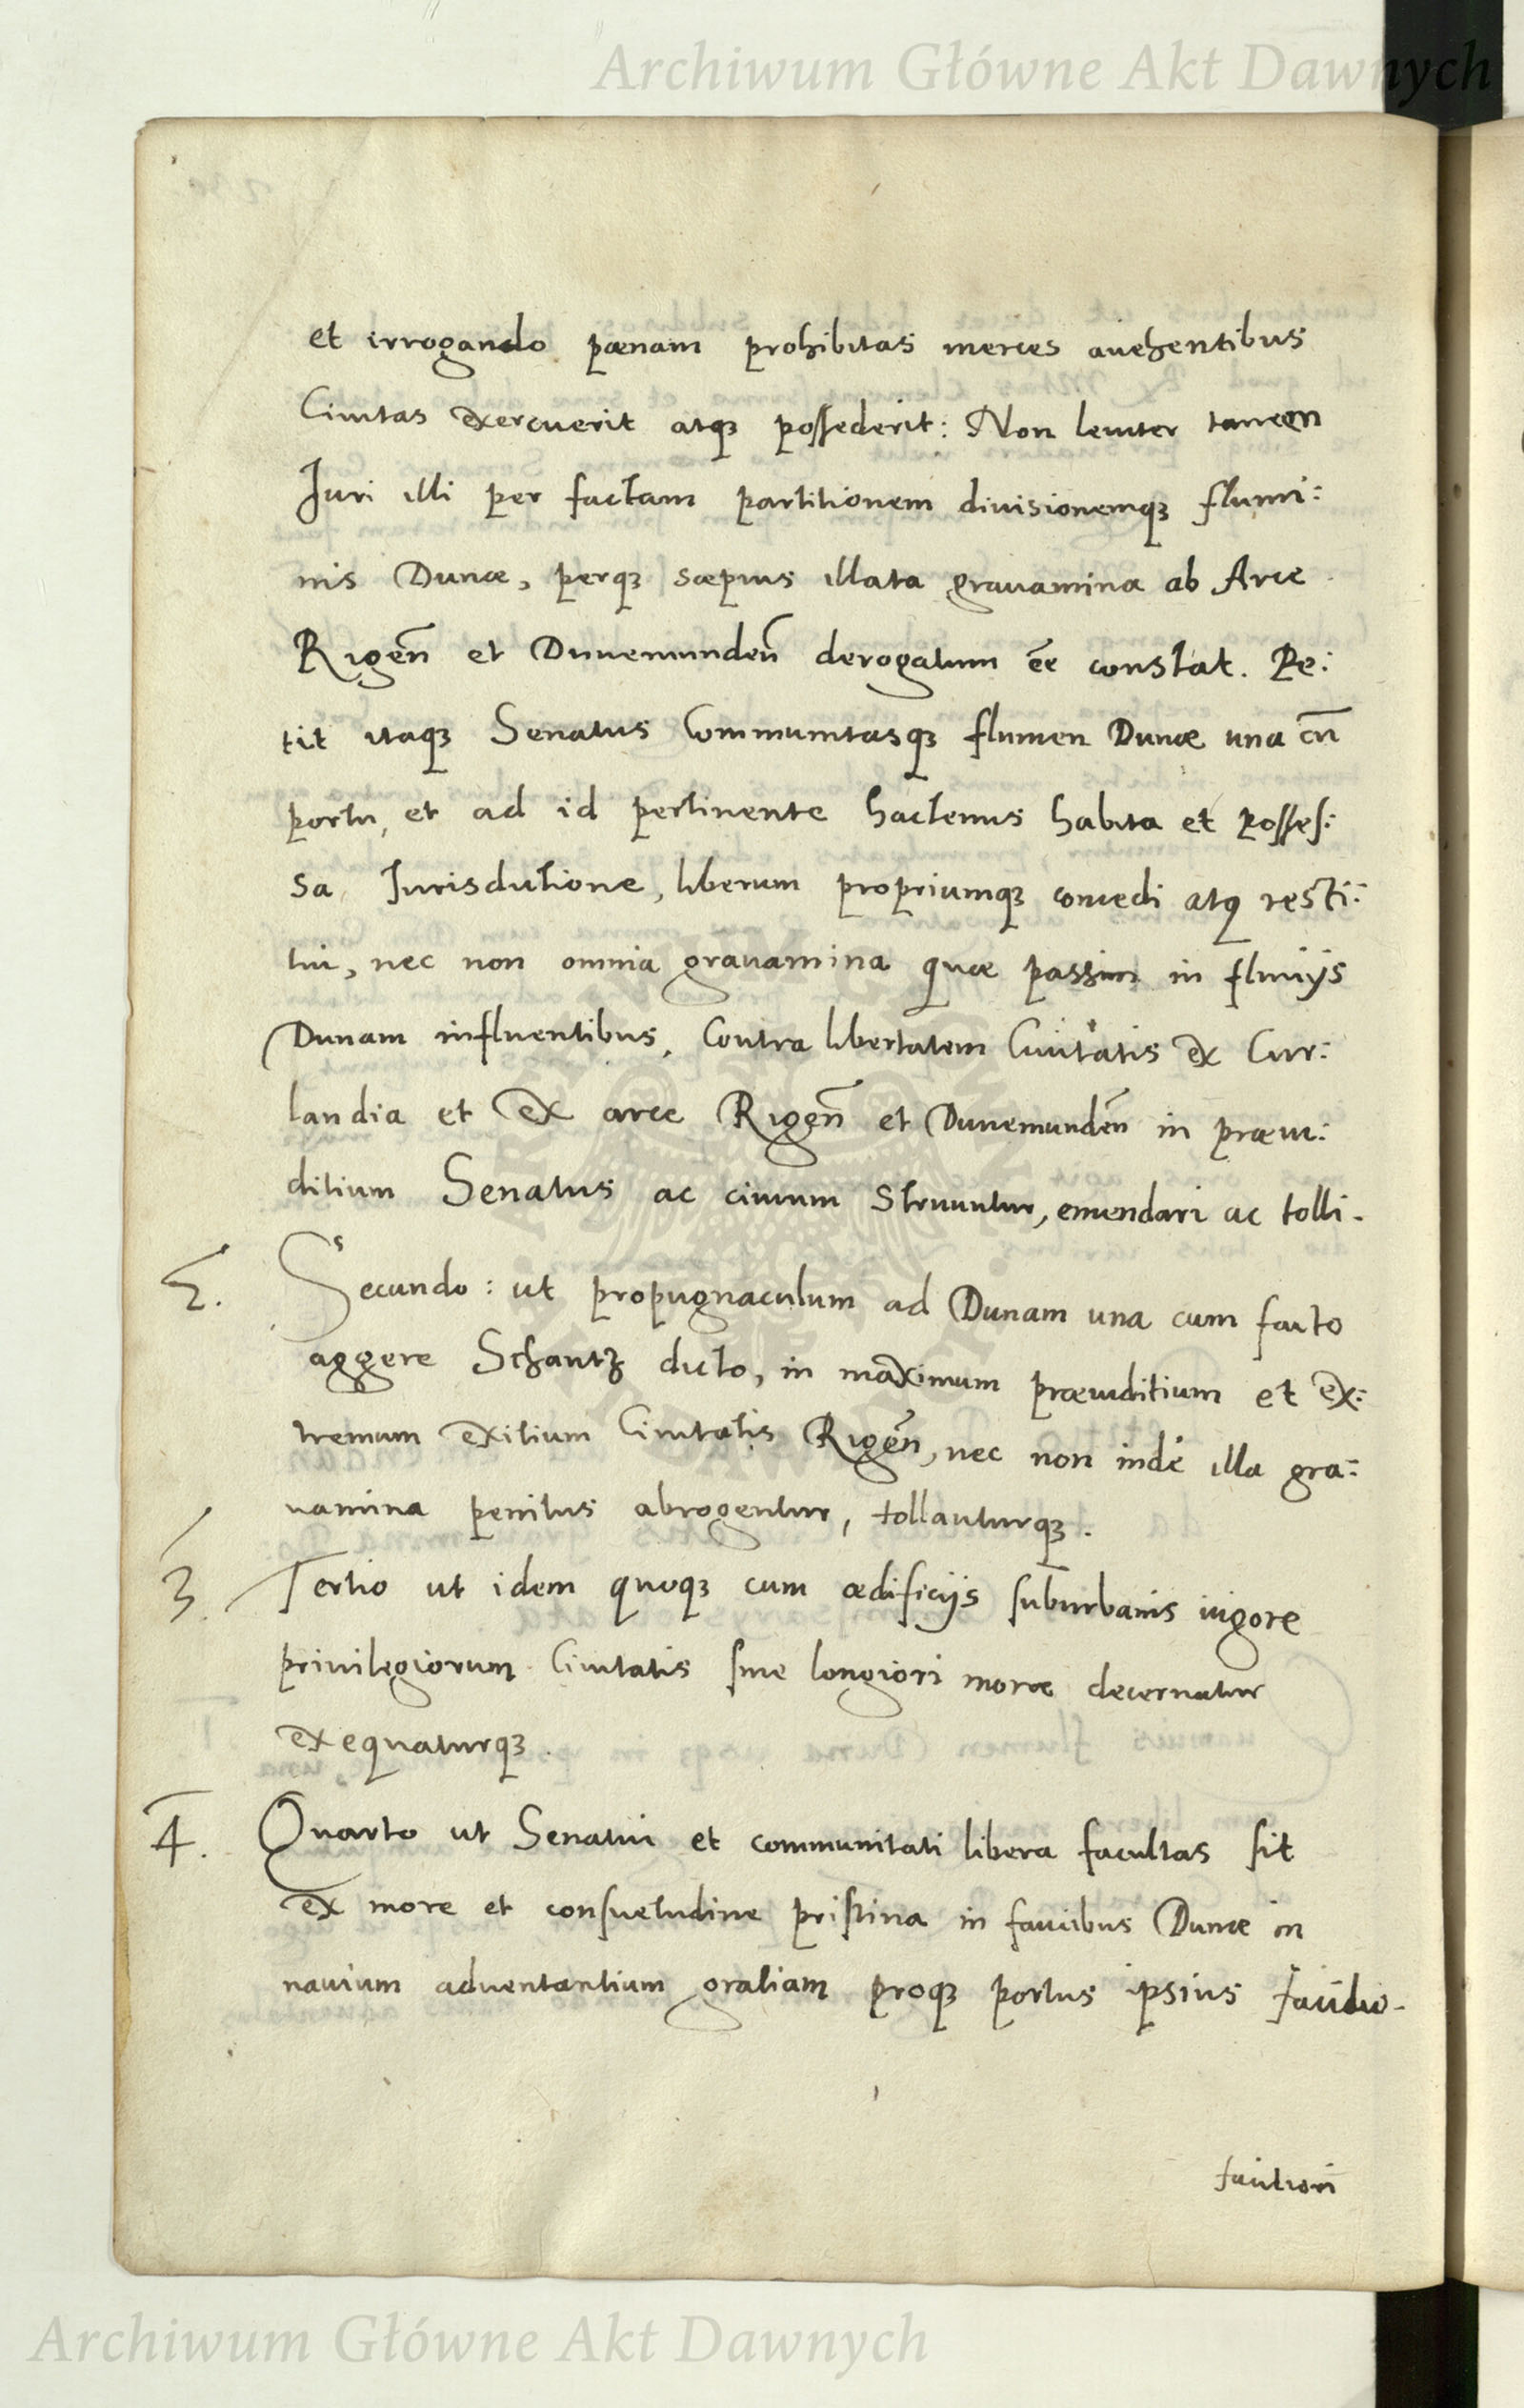 Archiwum Główne Akt Dawnych
et irrogando pœnam prohibitas merces auehentibus
Ciuitas exercuerit atqꝫ possederit: Non leuiter tamen
Juri illi per factam partitionem diuisionemqꝫ flumi:
nis Dunæ, perqꝫ sæpius illata grauamina ab Arce
Rigen̄ et Dunemunden̄ derogatum ēe constat. Pe:
tit itaqꝫ Senatus Communitasqꝫ flumen Dunæ una cū
portu, et ad id pertinente hactenus habita et posses:
sa Jurisdictione, liberum propriumqꝫ concedi atqꝫ resti:
tui, nec non omnia grauamina quæ passim in fluuijs
Dunam influentibus, Contra libertatem Ciuitatis ex Cur:
landia et ex arce Rigen̄ et Dunemunden̄ in præiu:
ditium Senatus ac ciuium struuntur, emendari ac tolli.
2. Secundo: ut propugnaculum ad Dunam una cum facto
aggere Schantz dicto, in maximum præiuditium et ex:
tremum exitium Ciuitatis Rigen̄, nec non indè illa gra:
uamina penitus abrogentur, tollanturqꝫ.
3. Tertio ut idem quoqꝫ cum ædificijs suburbanis uigore
priuilegiorum Ciuitatis sine longiori moræ decernatur
exequaturqꝫ.
4. Quarto ut Senatui et communitati libera facultas sit
ex more et consuetudine pristina in faucibus Dunæ in
nauium aduentantium gratiam proqꝫ portus ipsius
Archiwum Główne Akt Dawnych